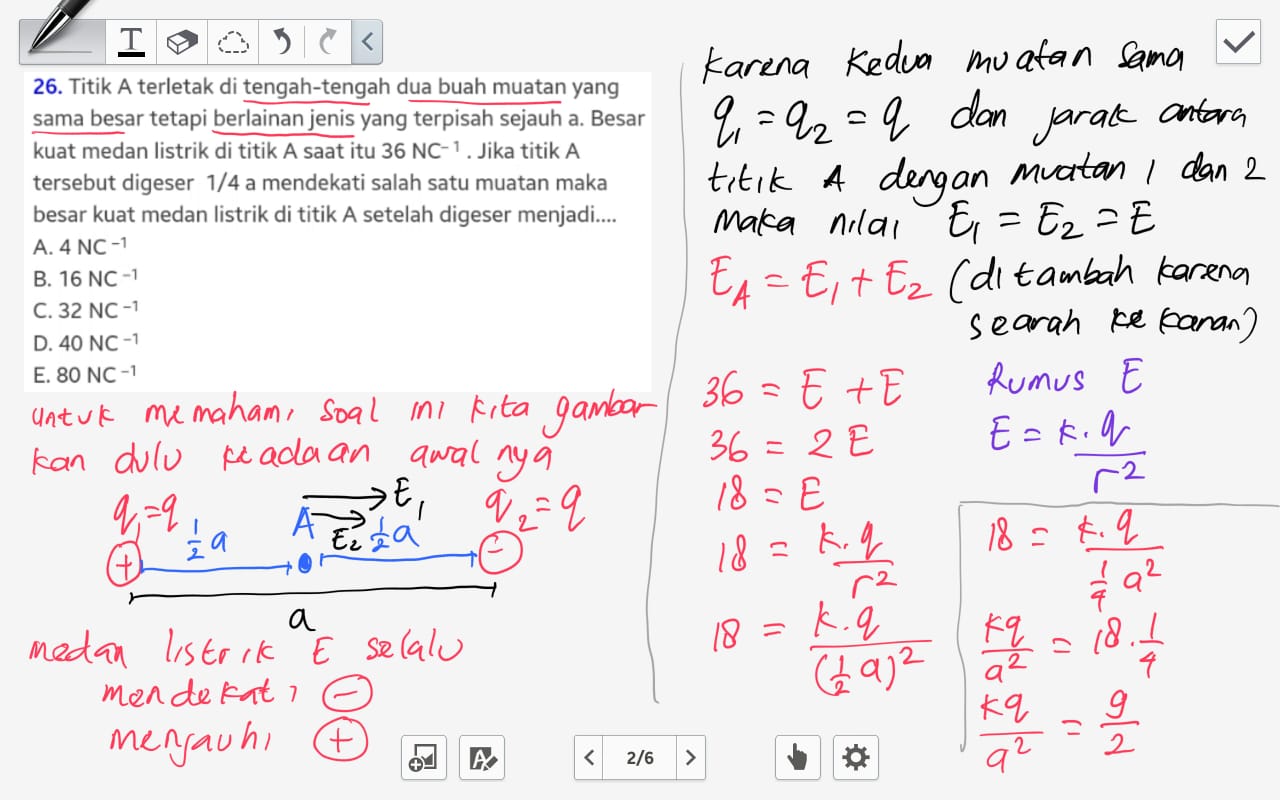 T
26. Titik A terletak di tengah-tengah dua buah muatan yang
sama besar tetapi berlainan jenis yang terpisah sejauh a. Besar
kuat medan listrik di titik A saat itu 36 NC⁻¹ . Jika titik A
tersebut digeser 1/4 a mendekati salah satu muatan maka
besar kuat medan listrik di titik A setelah digeser menjadi....
A. 4 NC⁻¹
B. 16 NC⁻¹
C. 32 NC⁻¹
D. 40 NC⁻¹
E. 80 NC⁻¹
untuk memahami soal ini kita gambar
kan dulu keadaan awal nya
q₁=q A E₁ q₂=q
½a E₂ ½a
+ −
a
medan listrik E selalu
mendekati −
menjauhi +
karena kedua muatan sama
q₁ = q₂ = q dan jarak antara
titik A dengan muatan 1 dan 2
Maka nilai E₁ = E₂ = E
E_A = E₁ + E₂ (ditambah karena
searah ke kanan)
36 = E + E
36 = 2E
18 = E
18 = k.q / r²
18 = k.q / (½ a)²
Rumus E
E = k.q / r²
18 = k.q / ¼ a²
kq / a² = 18 . ¼
kq / a² = 9 / 2
2/6